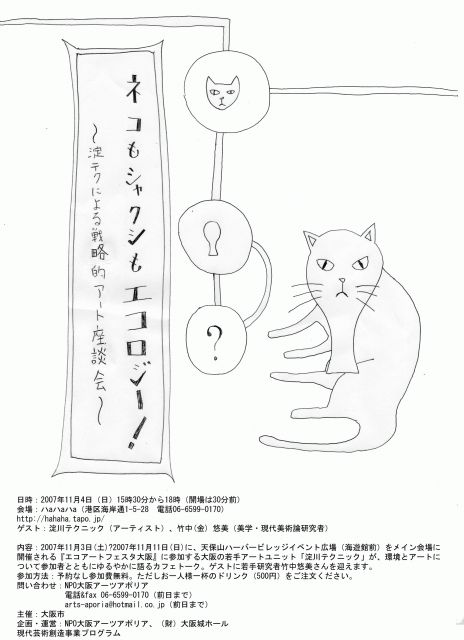 ネコもシャクシもエコロジー！
〜淀テクによる戦略的アート座談会〜
?
日時：2007年11月4日（日）15時30分から18時（開場は30分前）
会場：ハaハaハa（港区海岸通1-5-28　電話06-6599-0170）
http://hahaha.tapo.jp/
ゲスト：淀川テクニック（アーティスト）、竹中(金）悠美（美学・現代美術論研究者）
内容：2007年11月3日(土)?2007年11月11日(日)に、天保山ハーバービレッジイベント広場（海遊館前）をメイン会場に
開催される『エコアートフェスタ大阪』に参加する大阪の若手アートユニット「淀川テクニック」が、環境とアートに
ついて参加者とともにゆるやかに語るカフェトーク。ゲストに若手研究者竹中悠美さんを迎えます。
参加方法：予約なし参加費無料。ただしお一人様一杯のドリンク（500円）をご注文ください。
問い合わせ：NPO大阪アーツアポリア
電話&fax 06-6599-0170（前日まで）
arts-aporia@hotmail.co.jp（前日まで）
主催：大阪市
企画・運営：NPO大阪アーツアポリア、（財）大阪城ホール
現代芸術創造事業プログラム